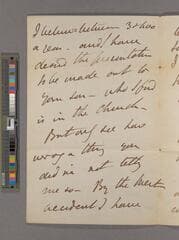 I believe between 3 & 400
a year - and I have
desired the presentation
to be made out to
your son - who I find
is in the Church -
But only see how
wrong a thing you
did in not telling
me so - By the merest
accident I have